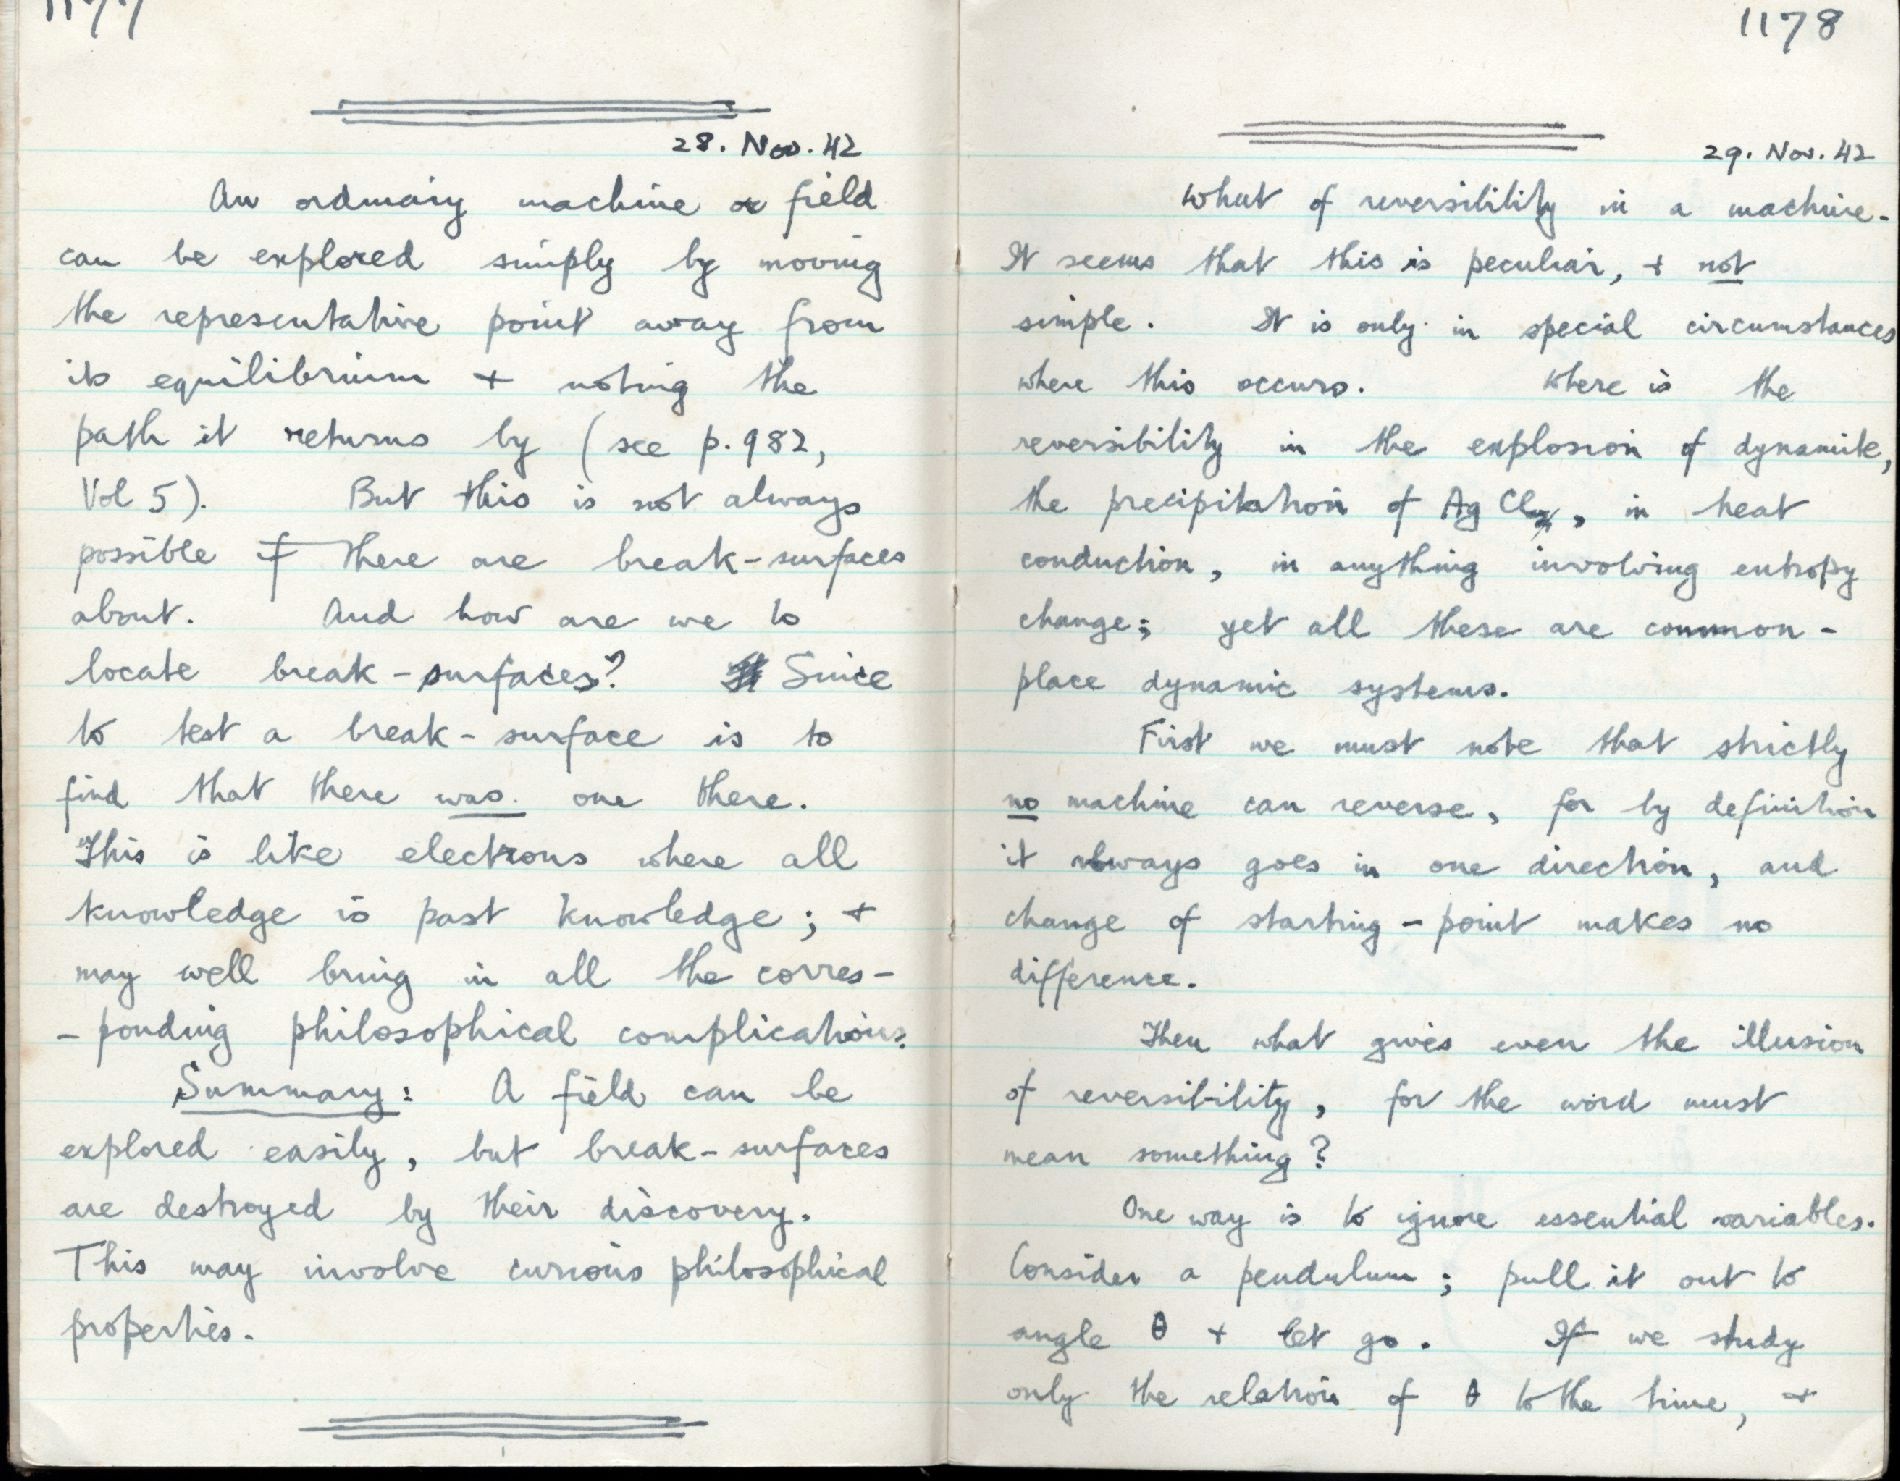 1177
28. Nov. 42
An ordinary machine or field
can be explored simply by moving
the representative point away from
its equilibrium + noting the
path it returns by (see p. 982,
Vol 5). But this is not always
possible if there are break-surfaces
about. And how are we to
locate break-surfaces? Since
to test a break-surface is to
find that there was one there.
This is like electrons where all
knowledge is past knowledge; +
may well bring in all the corres-
-ponding philosophical complications.
Summary: A field can be
explored easily, but break-surfaces
are destroyed by their discovery.
This may involve curious philosophical
properties.
1178
29. Nov. 42
What of reversibility in a machine.
It seems that this is peculiar, + not
simple. It is only in special circumstances
where this occurs. Where is the
reversibility in the explosion of dynamite,
the precipitation of Ag Cl, in heat
conduction, in anything involving entropy
change; yet all these are common-
place dynamic systems.
First we must note that strictly
no machine can reverse, for by definition
it always goes in one direction, and
change of starting-point makes no
difference.
Then what gives even the illusion
of reversibility, for the word must
mean something?
One way is to ignore essential variables.
Consider a pendulum; pull it out to
angle θ + let go. If we study
only the relation of θ to the time, +